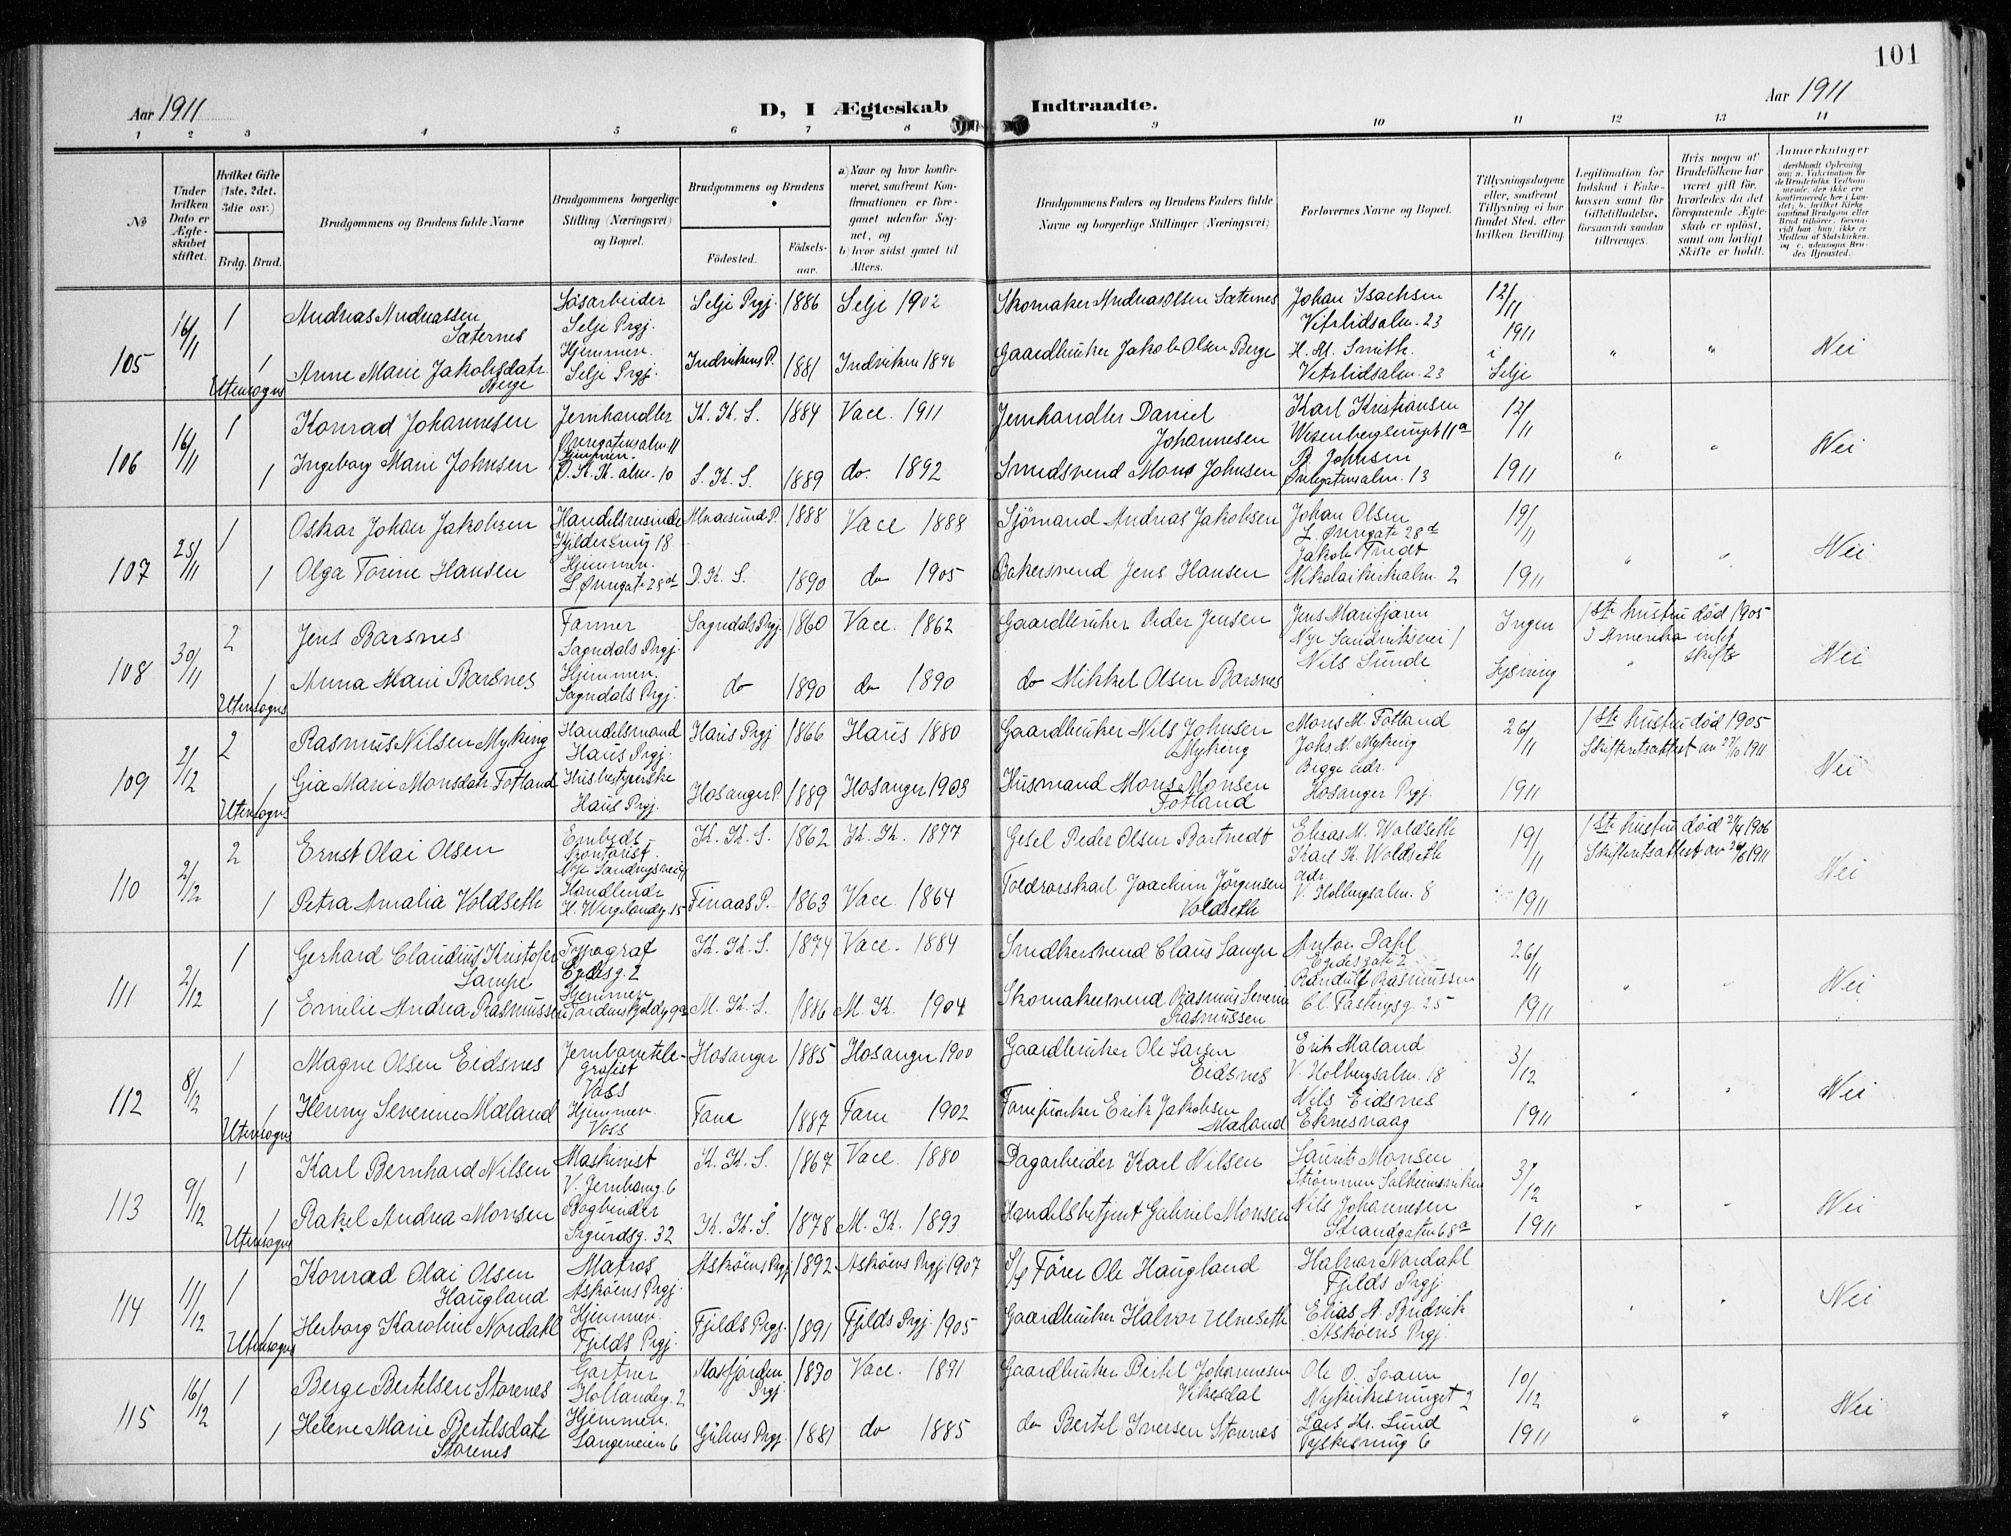 101
Aar 1911
D, I Ægteskab Indtraadte.
Aar 1911
1 2 3 4 5 6 7 8 9 10 11 12 13 14
No
Under hvilken Dato er Ægteskabet stiftet.
Hvilket Gifte (1ste, 2det, 3die osv.)
Brdg. Brud.
Brudgommens og Brudens fulde Navne
Brudgommens borgerlige Stilling (Næringsvei) og Bopæl.
Brudgommens og Brudens
Fødested. Fødselsaar.
a) Naar og hvor konfirmeret, saafremt Konfirmationen er foregaaet udenfor Sognet, og
b) hvor sidst gaaet til Alters.
Brudgommens Faders og Brudens Faders fulde Navne og borgerlige Stillinger (Næringsvei)
Forlovernes Navne og Bopæl.
Tillysningsdagene eller, saafremt Tillysning ei har fundet Sted, efter hvilken Bevilling.
Legitimation for Indskud i Enkekassen samt for Giftetilladelse, forsaavidt saadan tiltrænges.
Hvis nogen af Brudefolkene har været gift før, hvorledes da det foregaaende Ægteskab er opløst, samt om lovligt Skifte er holdt.
Anmerkninger
105 16/11 1 Andreas Andreassen Sæternes
Selje Prgj.
Selje Prgj. 1886 Selje 1902
Skomaker Andreas Olsen Sæternes
Johan Isachsen
Vetrlidsalm. 23
12/11 1911
1 Anne Marie Jakobsdatr. Berge
Hjemmev.
Selje Prgj.
Indvikens P. 1881 Indviken 1896
Gaardbruker Jakob Olsen Berge
H. M. Smith
Vetrlidsalm. 23
i Selje
" " Nei
Utensogns
106 16/11 1 Konrad Johannesen
Jernhandler
Øvregatensalm. 11
K. K. S. 1884 Vacc. 1911
Jernhandler Daniel Johannesen
Karl Kristiansen
12/11
1 Ingeborg Marie Johnsen
Hjemmev.
D. K. K. alm. 10
S. K. S. 1889 do. 1892
Smedsvend Mons Johnsen
Johnsen
Øvregatensalm. 13
1911
" " Nei
107 25/11 1 Oskar Johan Jakobsen
Handelsreisende
18
1888 Vacc 1888
Sjömand Andreas Jakobsen
Johan Olsen
L. Øvregate 28d
19/11
1 Olga Torine Hansen
Hjemmev.
L. Øvregate 28d
D. K. S. 1890 do 1905
Bakersvend Jens Hansen
Jakob Tredt
Nikolaikirkealm. 2
1911
" " Nei
108 30/11 2 Jens Barsnes
Farmer
Sogndals Prgj.
Sogndals Prgj. 1860 Vacc. 1862
Gaardbruker Peder Jensen
Jens Marifjæren
Nye Sandviksvei 1
Ingen
1ste hustru död 1905
i Amerika intet skifte
1 Anna Marie Barsnes
Hjemmev.
Sogndals Prgj.
do 1890 do 1890
do Mikkel Olsen Barsnes
Nils Sunde
lysning
" Nei
Utensogns
109 2/12 2 Rasmus Nilsen Myking
Handelsmand
Haus Prgj.
Haus Prgj 1866 Haus 1880
Gaardbruker Nils Johnsen Myking
Mons M. Fotland
Johs N. Myking
26/11
1ste hustru död 1905
1 Gia Marie Monsdatr Fotland
Husbestyrerske
Haus Prgj.
Hosanger P. 1889 Hosanger 1903
Husmand Mons Monsen Fotland
Begge adr.
Hosanger Prgj.
1911
Nei
Utensogns
110 2/12 2 Ernst Olai Olsen
Embeds-
kontorist
K. K. S. 1862 K. K. 1877
Gesel Peder Olsen
Elias M. Woldseth
Karl K. Woldseth
19/11
1ste hustru död 2/4 1906
1 Petra Amalia Voldseth
Handlende
H. Wergelandsg. 15
Finaas P. 1863 Vacc 1864
Toldrorskarl Joachim Jörgensen Voldseth
adr.
V. Holbergsalm. 8
1911
Nei
111 2/12 1 Gerhard Claudius Kristofer Lampe
Typograf
Egedesg. 2
K. K. S. 1874 Vacc. 1884
Snedkersvend Claus Lampe
Anton Dahl
Egedesgate 2
26/11
1 Emilie Andrea Rasmussen
Hjemmev
Tordenskjoldsg. 9a
M. K. S. 1886 M. K. 1904
Skomakersvend Rasmus Severin Rasmussen
Randulf Rasmussen
Cl. Fastingsg. 25
1911
" " Nei
112 8/12 1 Magne Olsen Eidsnes
Jernbanetele-
grafist
Voss
Hosanger 1885 Hosanger 1900
Gaardbruker Ole Larsen Eidsnes
Erik Mæland
V. Holbergsalm. 18
3/12
1 Henny Severine Mæland
Hjemmev.
Voss
Fane 1887 Fane 1902
Erik Jakobsen Mæland
Nils Eidsnes
Eknesvaag
1911
" " Nei
Utensogns
113 9/12 1 Karl Bernhard Nilsen
Maskinist
V. Jernbaneg. 6
K. K. S. 1867 Vacc. 1880
Dagarbeider Karl Nilsen
Laurits Monsen
Strømmen Solheimsviken
3/12
1 Rakel Andrea Monsen
Bogbinder
Sigurdsg. 32
K. K. S. 1878 M. K. 1893
Handelsbetjent Gabriel Monsen
Nils Johannesen
Strandgaten 68a
1911
" " Nei
Utensogns
114 11/12 1 Konrad Olai Olsen Haugland
Matros
Askøens Prgj.
Askøens Prgj 1892 Askøens Prgj 1907
S/S Fører Ole Haugland
Halvor Nordahl
Fjelds Prgj.
1 Herborg Karoline Nordahl
Hjemmev.
Fjelds Prgj.
Fjelds Prgj. 1891 Fjelds Prgj. 1905
Gaardbruker Halvor Ulveseth
Elias A. Bredvik
Askøens Prgj.
" " Nei
Utensogns
115 16/12 1 Berge Bertelsen Storenes
Gartner
Hollenderg. 2
Prgj. 1870 Vacc. 1871
Gaardbruker Bertel Johannesen Vikesdal
Ole O. Svann
Nykirkesmuget 2
10/12
1 Helene Marie Bertelsdatr Storenes
Hjemmev.
Langeveien 6
Gulens Prgj. 1881 do 1885
do Bertel Iversen Storenes
Lars Kr. Lund
6
1911
" " Nei